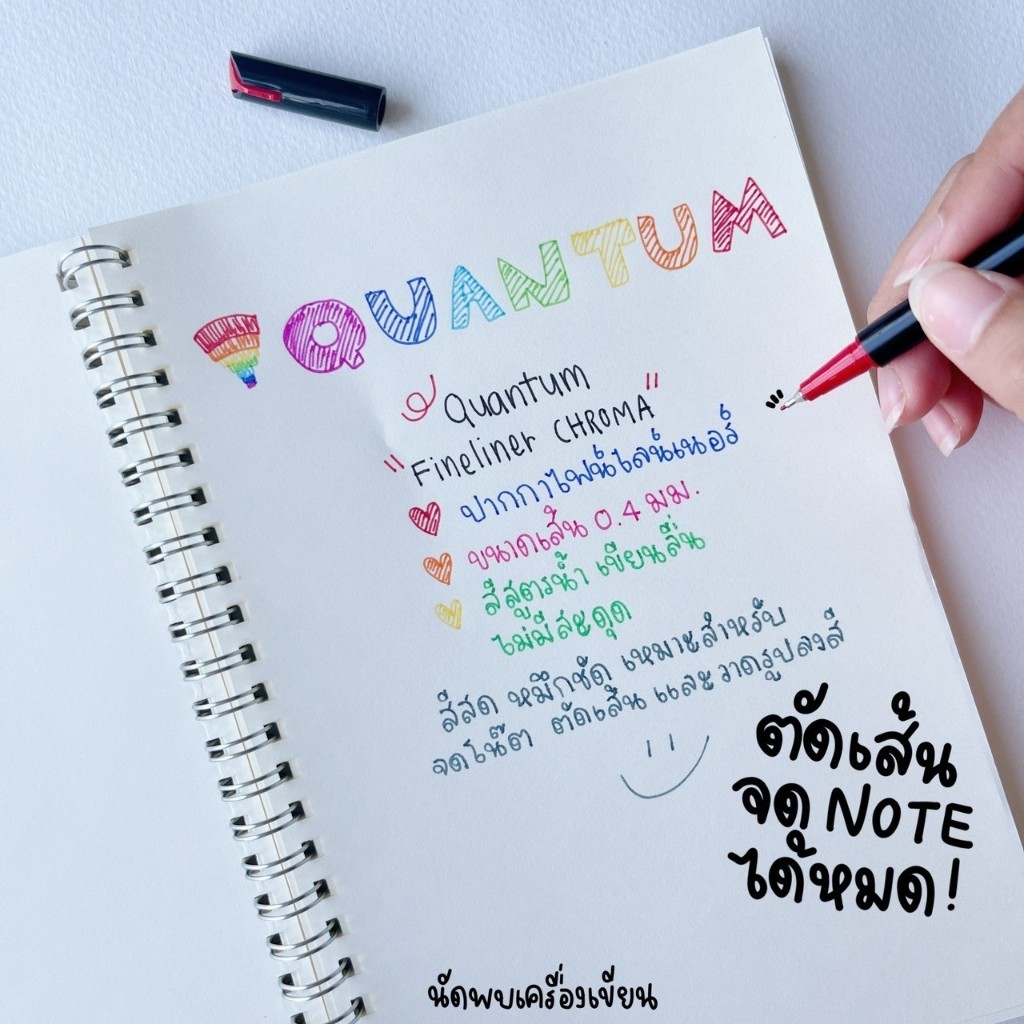 QUANTUM
Quantum
"Fineliner CHROMA"
ปากกาไฟน์ไลน์เนอร์
ขนาดเส้น 0.4 มม.
สีสูตรน้ำ เขียนลื่น
ไม่มีสะดุด
สีสด หมึกชัด เหมาะสำหรับ
จดโน๊ต ตัดเส้น และวาดรูปลงสี
ตัดเส้น
จด NOTE
ได้หมด!
นัดพบเครื่องเขียน